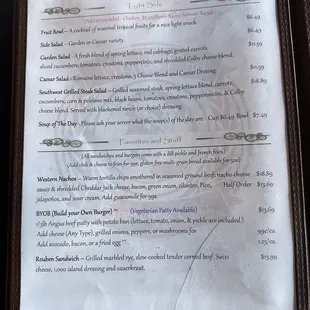 Light Side
Fruit Bowl – A cocktail of seasonal tropical fruits for a nice light snack. $6.49
Side Salad – Garden or Caesar variety. $6.49
Garden Salad – A fresh blend of spring lettuce, red cabbage, grated carrots, $11.59
sliced cucumbers, tomatoes, croutons, pepperoncini, and shredded Colby cheese blend.
Caesar Salad – Romaine lettuce, croutons, 3 Cheese Blend and Caesar Dressing $11.59
Southwest Grilled Steak Salad – Grilled seasoned steak, spring lettuce blend, carrots, $18.89
cucumbers, corn & poblano mix, black beans, tomatoes, croutons, pepperoncini, & Colby
cheese blend. Served with blackened ranch (or choice) dressing.
Soup of The Day – Please ask your server what the soup(s) of the day are. Cup $6.49 Bowl $7.49
Favorites and Stuff
(All sandwiches and burgers come with a dill pickle and french fries.)
(Add chili & cheese to fries for 99¢, gluten free multi-grain bread available for 50¢)
Western Nachos – Warm tortilla chips smothered in seasoned ground beef, nacho cheese $18.89
sauce & shredded Cheddar Jack cheese, bacon, green onion, cilantro, Pico, Half Order $13.69
jalapeños, and sour cream. Add guacamole for 99¢.
BYOB (Build your Own Burger) ** (Vegetarian Patty Available) $13.69
1/3lb Angus beef patty with potato bun (lettuce, tomato, onion, & pickle are included.)
Add cheese (Any Type), grilled onions, peppers, or mushrooms for 99¢/ea.
Add avocado, bacon, or a fried egg ** 1.25/ea.
Reuben Sandwich – Grilled marbled rye, slow-cooked tender corned beef, Swiss $13.99
cheese, 1,000 island dressing and sauerkraut.